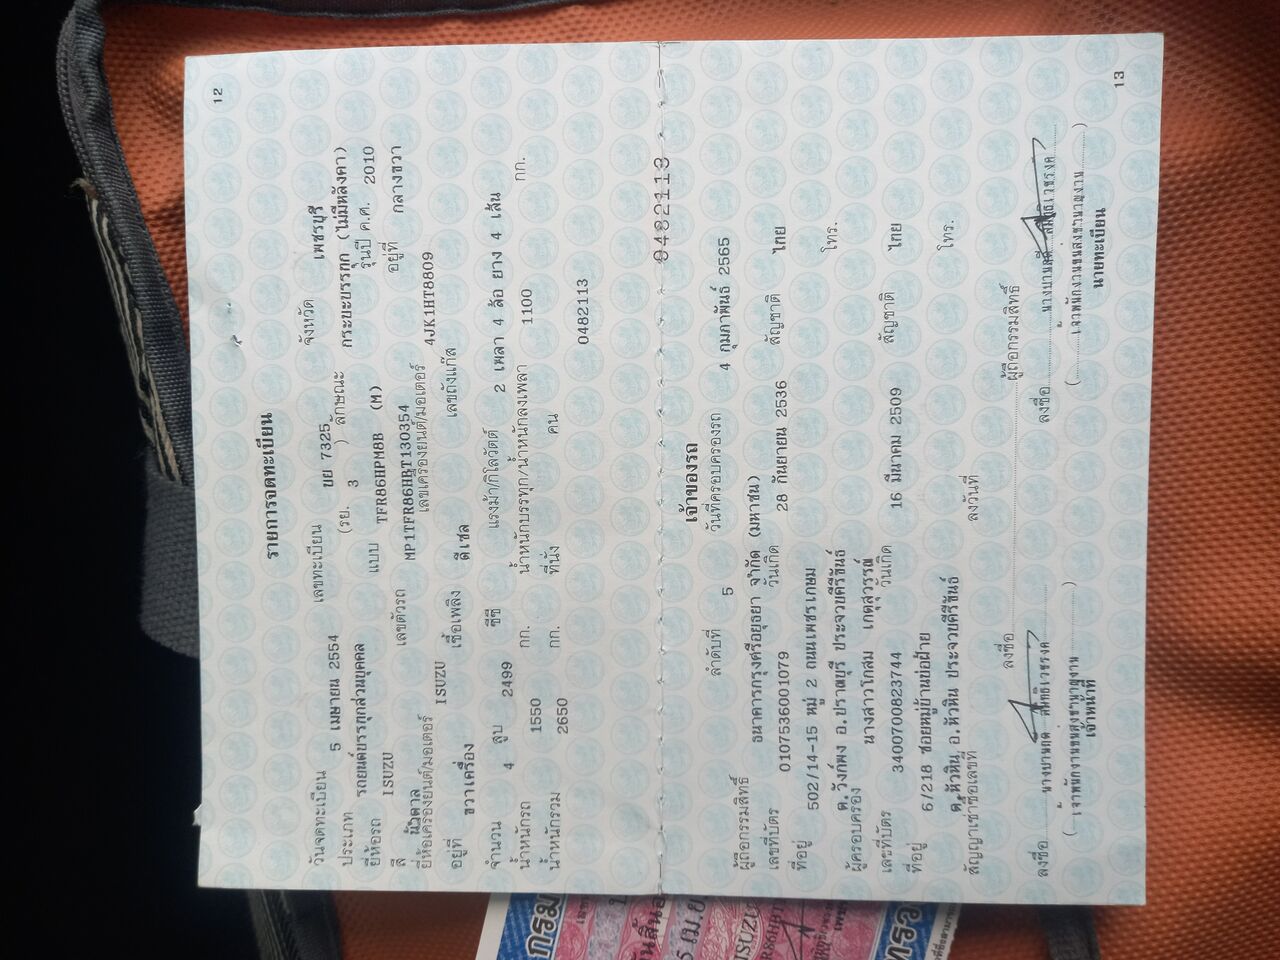 12
รายการจดทะเบียน
วันจดทะเบียน 5 เมษายน 2554 เลขทะเบียน ขย 7325 จังหวัด เพชรบุรี
ประเภท รถยนต์บรรทุกส่วนบุคคล (รย. 3 ) ลักษณะ กระบะบรรทุก (ไม่มีหลังคา)
ยี่ห้อรถ ISUZU แบบ TFR86HPM8B (M) รุ่นปี ค.ศ. 2010
สี น้ำตาล เลขตัวรถ MP1TFR86HBT130354 อยู่ที่ กลางขวา
ยี่ห้อเครื่องยนต์/มอเตอร์ ISUZU เลขเครื่องยนต์/มอเตอร์ 4JK1HT8809
อยู่ที่ ขวาเครื่อง เชื้อเพลิง ดีเซล เลขถังแก๊ส
จำนวน 4 สูบ 2499 ซีซี แรงม้า/กิโลวัตต์ 2 เพลา 4 ล้อ ยาง 4 เส้น
น้ำหนักรถ 1550 กก. น้ำหนักบรรทุก/น้ำหนักลงเพลา 1100 กก.
น้ำหนักรวม 2650 กก. ที่นั่ง คน
0482113
0482113
เจ้าของรถ
ลำดับที่ 5 วันที่ครอบครองรถ 4 กุมภาพันธ์ 2565
ผู้ถือกรรมสิทธิ์ ธนาคารกรุงศรีอยุธยา จำกัด (มหาชน)
เลขที่บัตร 0107536001079 วันเกิด 28 กันยายน 2536 สัญชาติ ไทย
ที่อยู่ 502/14-15 หมู่ 2 ถนนเพชรเกษม โทร.
ต.วังก์พง อ.ปราณบุรี ประจวบคีรีขันธ์
ผู้ครอบครอง นางสาวโกสม เกตุสุวรรณ์
เลขที่บัตร 3400700823744 วันเกิด 16 มีนาคม 2509 สัญชาติ ไทย
ที่อยู่ 6/218 ซอยหมู่บ้านบ่อฝ้าย โทร.
ต.หัวหิน อ.หัวหิน ประจวบคีรีขันธ์
สัญญาเช่าซื้อเลขที่ ลงวันที่
ลงชื่อ ผู้ถือกรรมสิทธิ์
ลงชื่อ ลงชื่อ
(เจ้าพนักงานขนส่งชำนาญงาน) (เจ้าพนักงานขนส่งชำนาญงาน)
เจ้าหน้าที่ นายทะเบียน
13
กรม
ISUZU